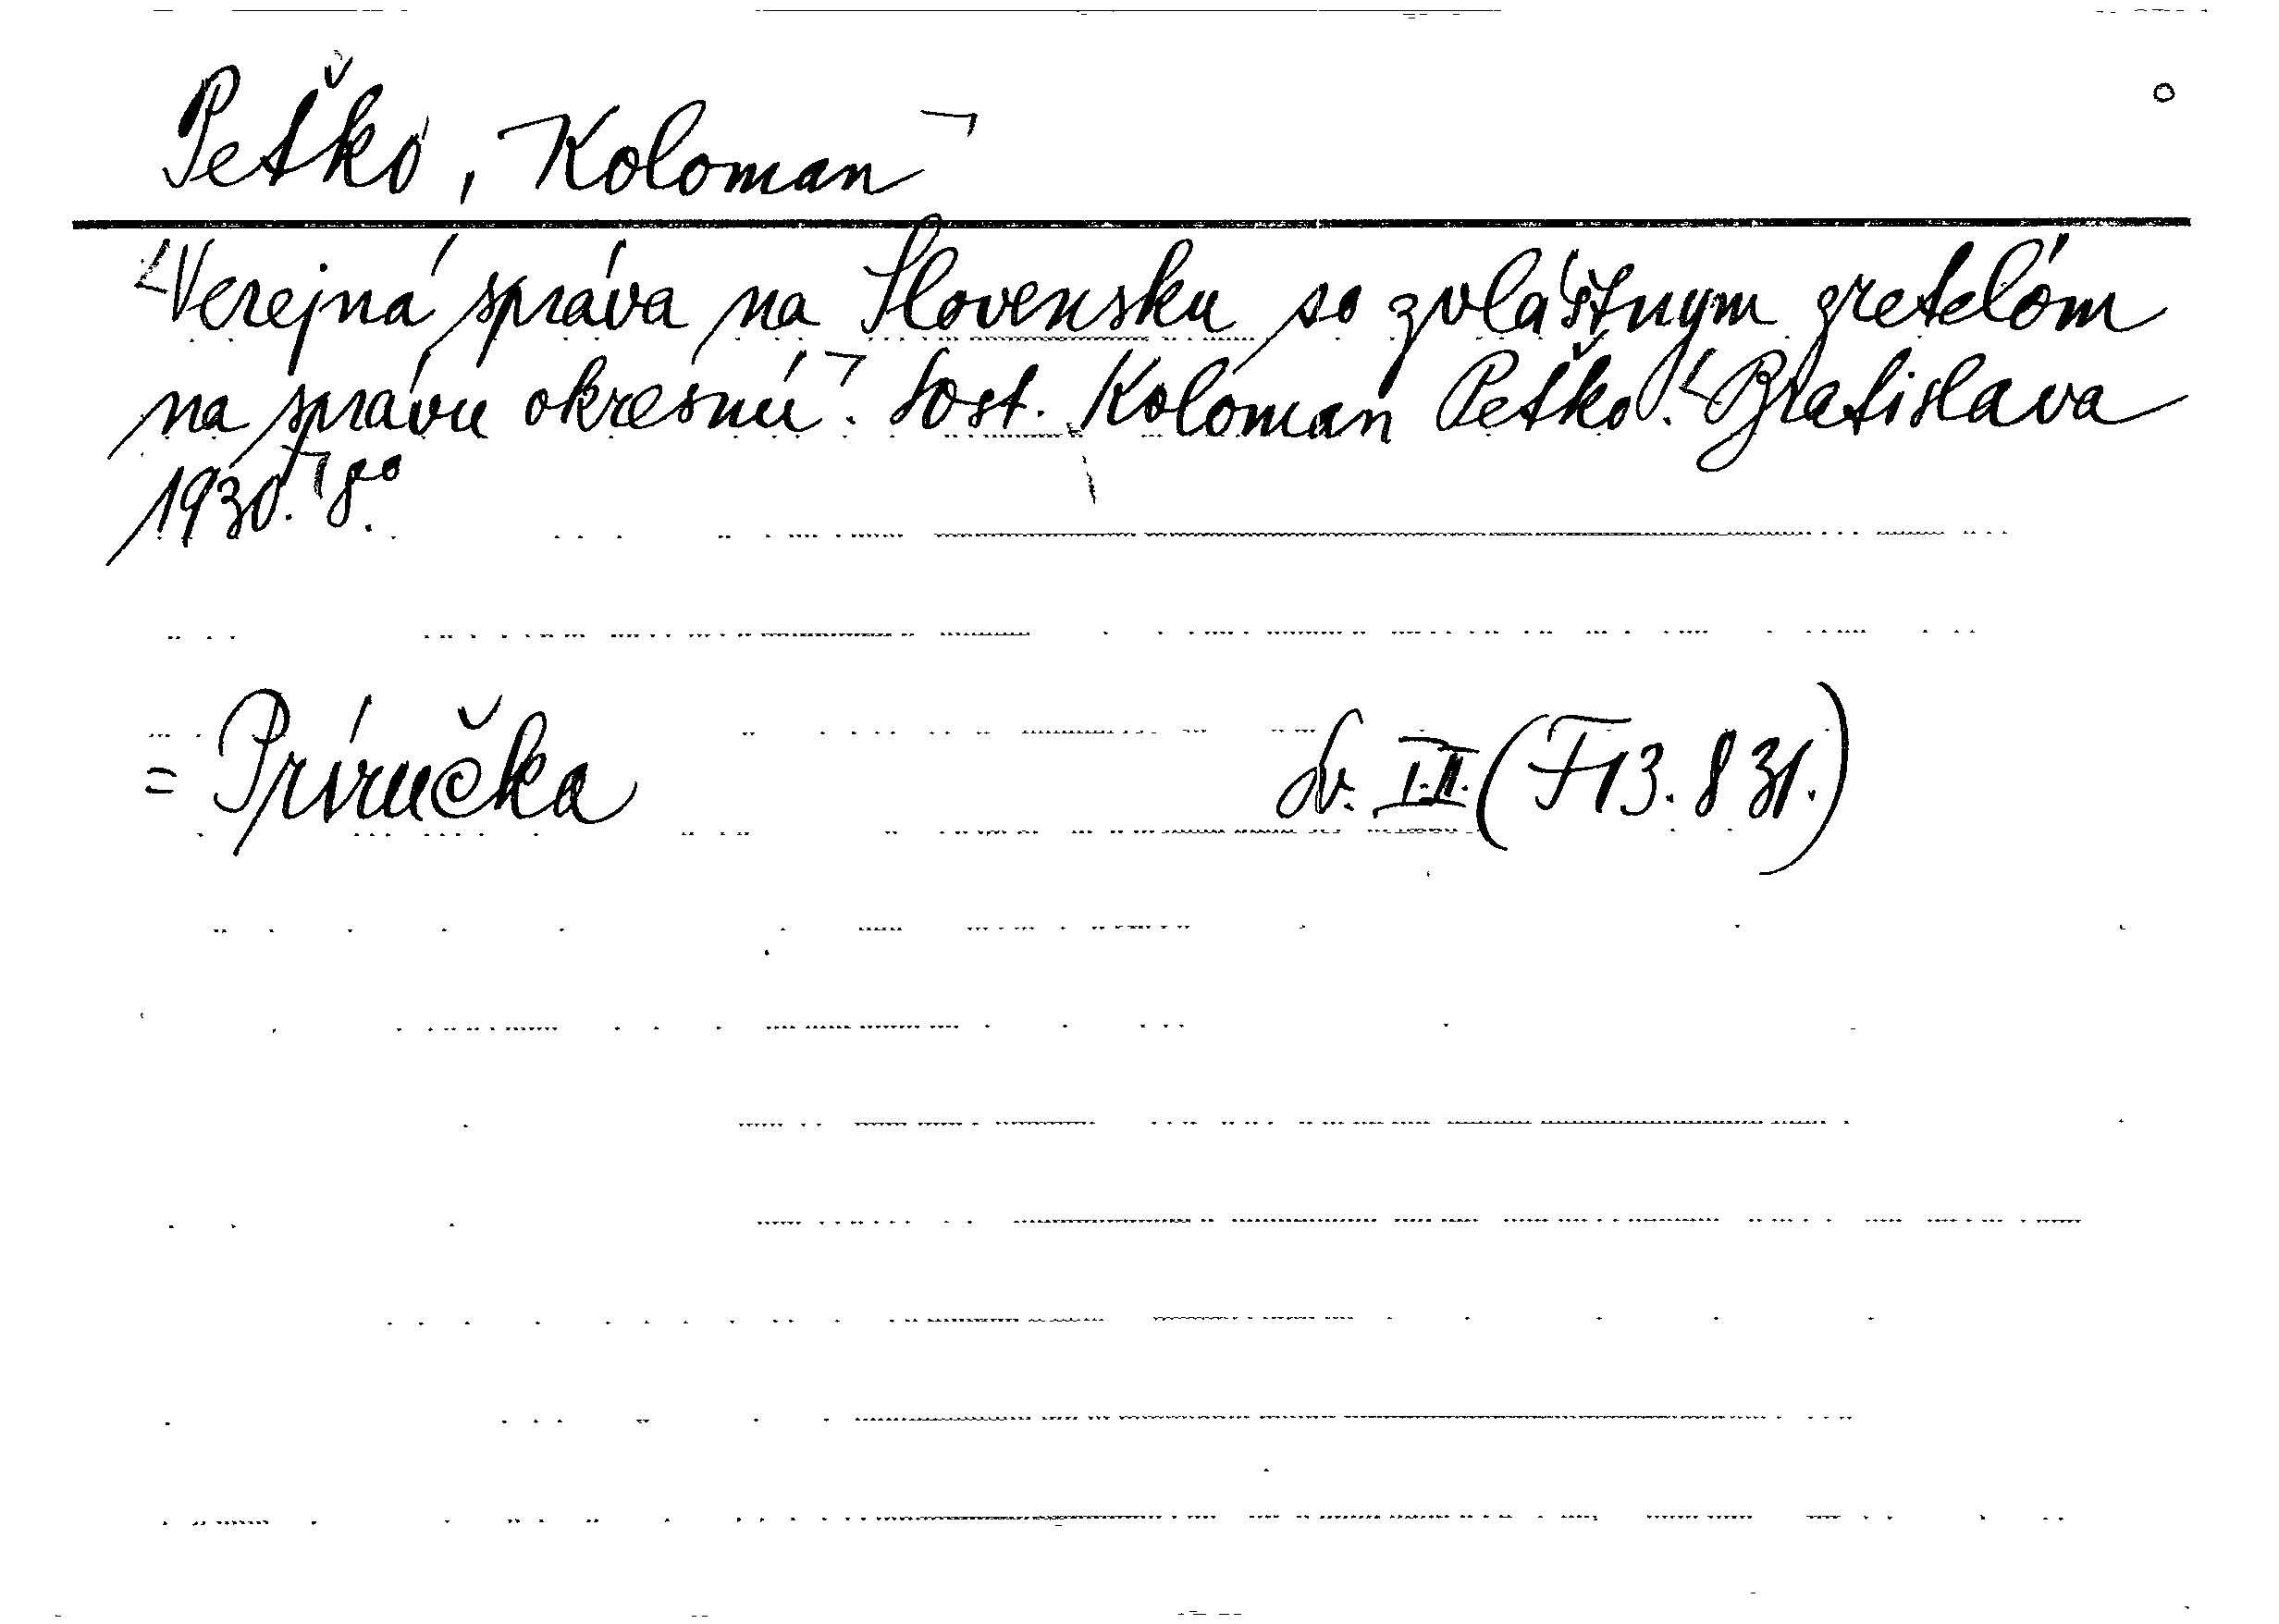 Peťko, Koloman
Verejná správa na Slovensku so zvláštnym zreteľom
na správu okresnú. Sost. Koloman Peťko. Bratislava
1930. 8°.
= Príručka Sv. I.II. (F13.831.)